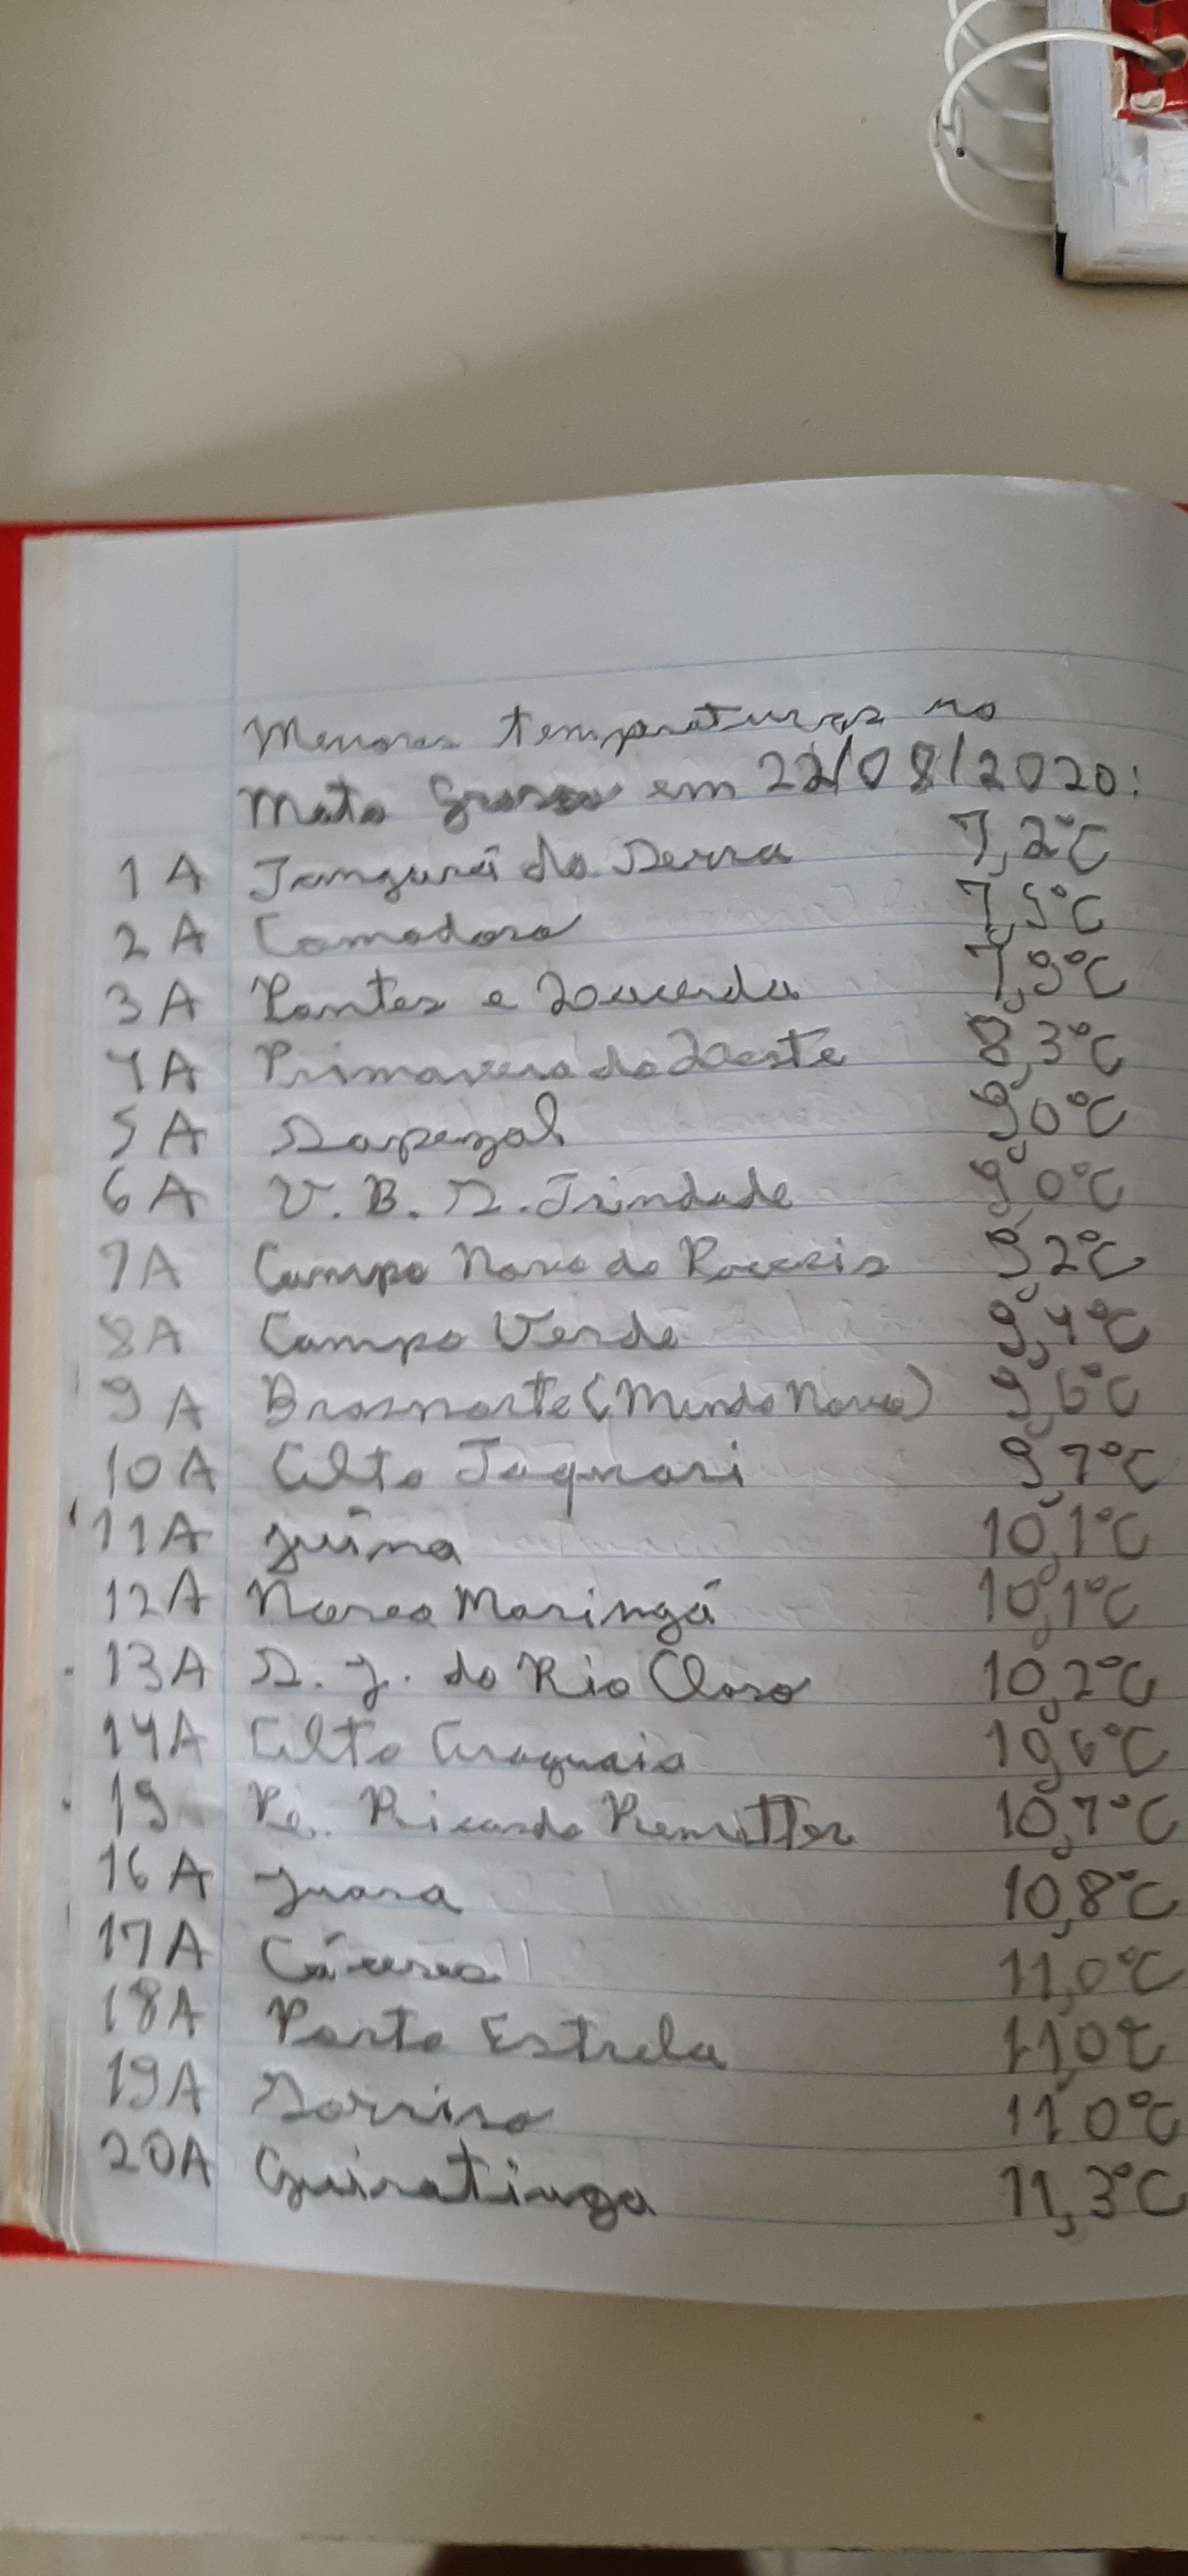 Menores temperaturas no
Mato Grosso em 22/08/2020:
1A Tangará da Serra 7,2°C
2A Comodoro 7,5°C
3A Pontes e Lacerda 7,9°C
4A Primavera do Leste 8,3°C
5A Sapezal 9,0°C
6A V. B. S. Trindade 9,0°C
7A Campo Novo do Parecis 9,2°C
8A Campo Verde 9,4°C
9A Brasnorte (Mundo Novo) 9,6°C
10A Alto Taquari 9,7°C
11A Juína 10,1°C
12A Nova Maringá 10,1°C
13A S. J. do Rio Claro 10,2°C
14A Alto Araguaia 10,6°C
19 Pe. Ricardo Remetter 10,7°C
16A Juara 10,8°C
17A Cáceres 11,0°C
18A Porto Estrela 11,0°C
19A Sorriso 11,0°C
20A Guiratinga 11,3°C